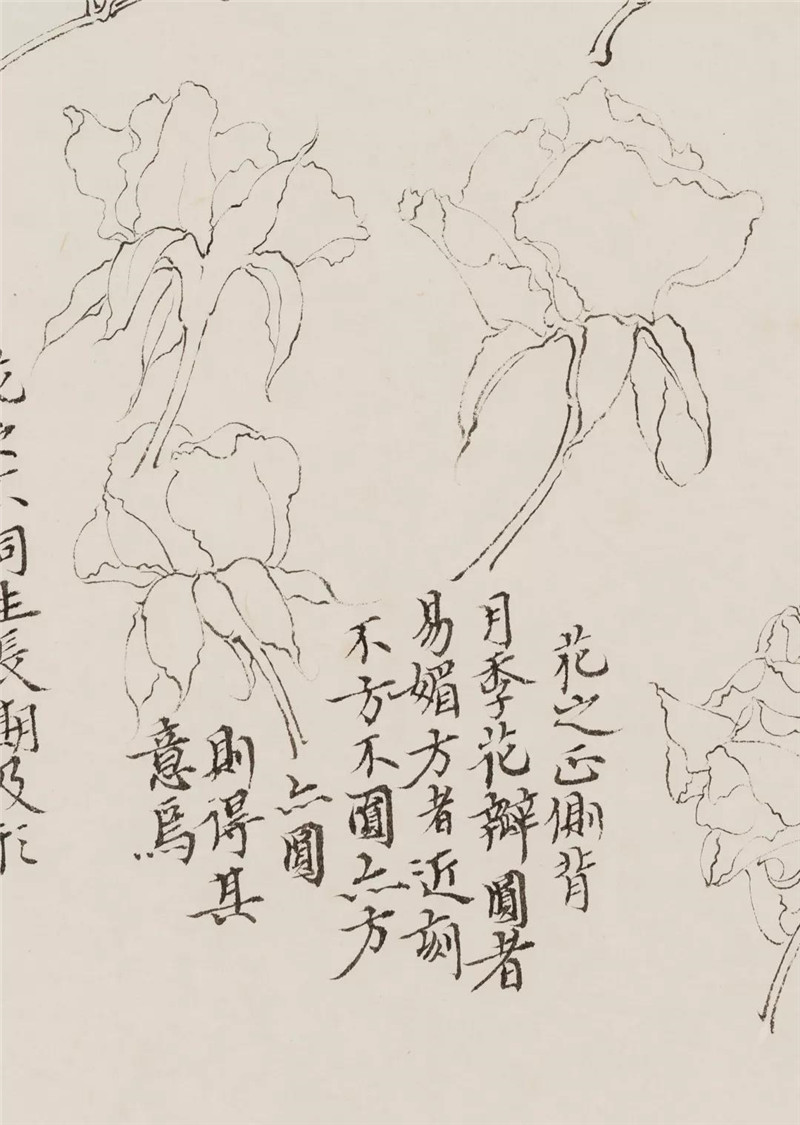 花之正側背
月季花瓣圓者
易媚方者近刻
不方不圓亦方
亦圓
則得其
意焉
花之不同生長期及形